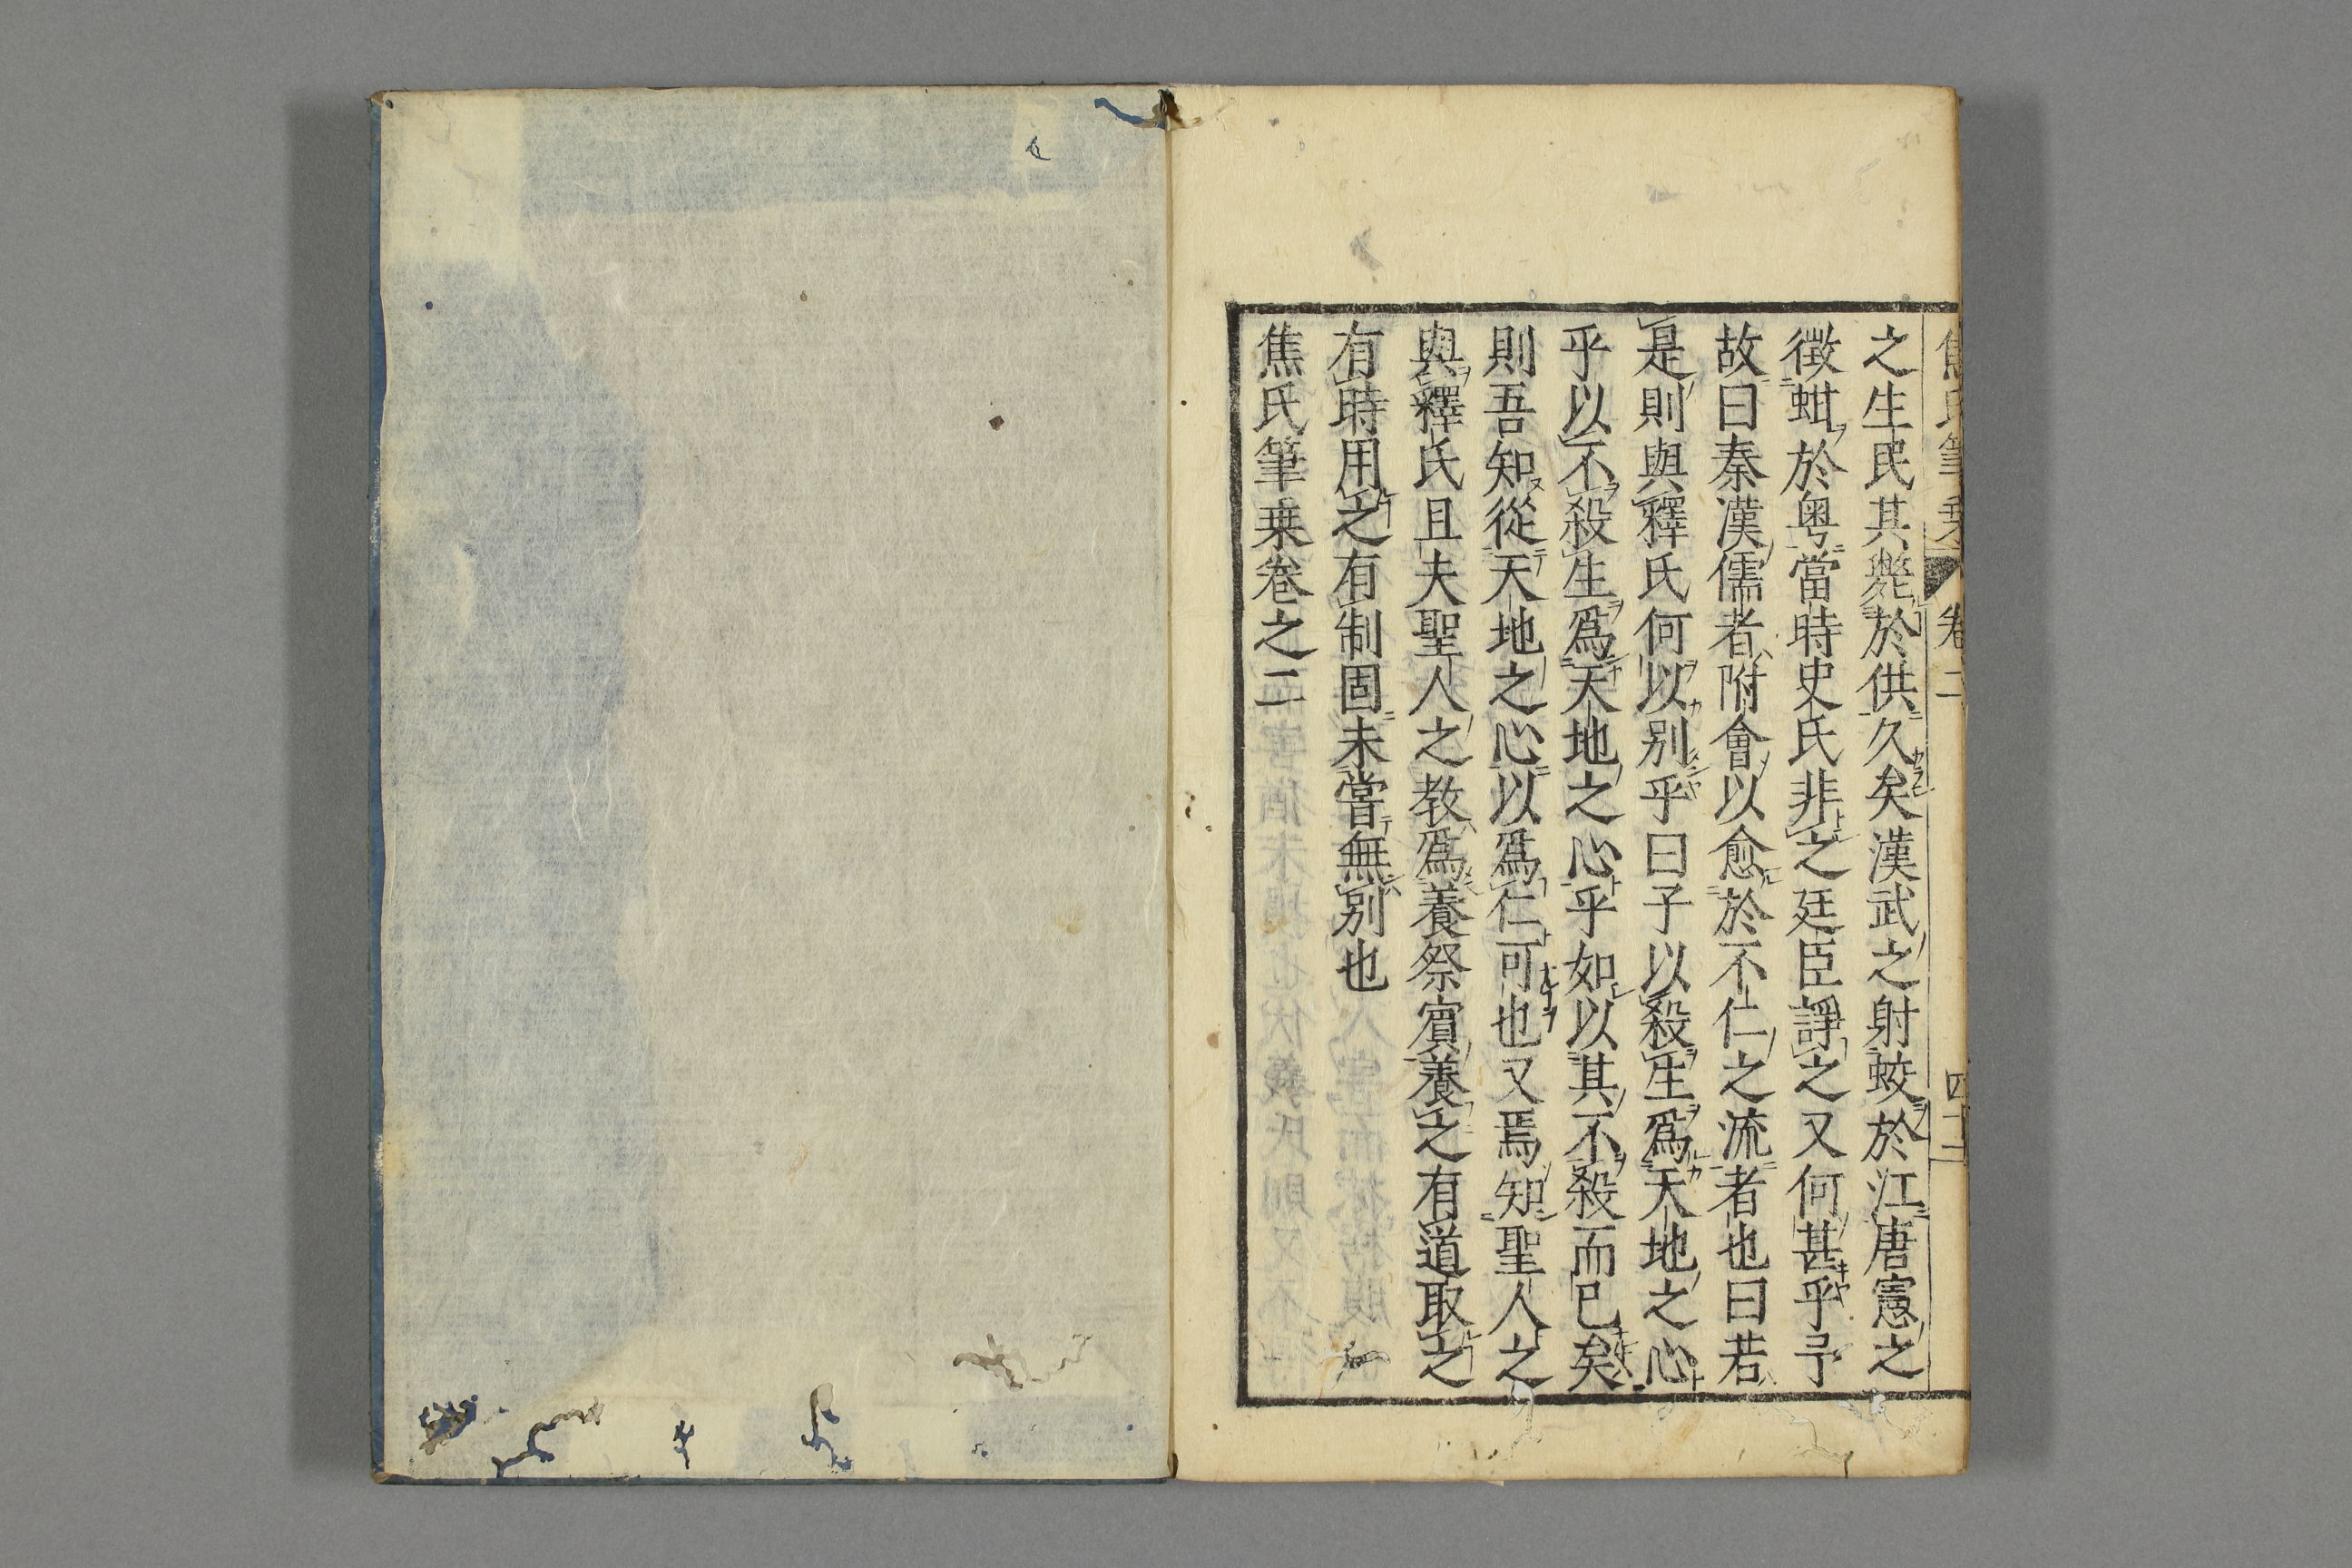 焦氏筆乗 卷二 四十二
之生民其斃於供久矣漢武之射蛟於江唐憲之
徴蚶於粤當時史氏非之廷臣諍之又何甚乎予
故曰秦漢儒者附會以愈於不仁之流者也曰若
是則與釋氏何以别乎曰子以殺生爲天地之心
乎以不殺生爲天地之心乎如以其不殺而已矣
則吾知從天地之心以爲仁可也又焉知聖人之
與釋氏且夫聖人之教爲養祭賓養之有道取之
有時用之有制固未嘗無别也
焦氏筆乗卷之二